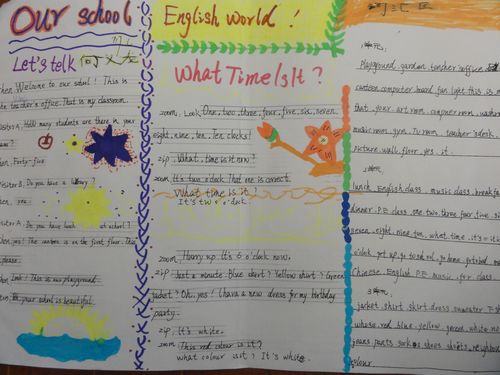 Our school
Let's telk
Welcome to our school! This is
the teacher's office. That is my classroom.
Visitor A. How many students are there in your
Forty-five
Visitor B. Do you have a library?
Visitor A. Do you have lunch at school?
yes! The canteen is on the first floor. This
please.
Look! This is our playground.
your school is beautiful.
English world!
What Time Is It?
zoom. Look. One, two, three, four, five, six, seven.
eight, nine, ten. Ten clocks!
zip. What time is it now?
zoom It's two o'clock. That one is correct.
What time is it?
It's two o'clock.
zoom Hurry up. It's 6 o'clock now.
zip Just a minute. Blue skirt? Yellow skirt? Green
jacket? Oh, yes! I have a new dress for my birthday
party.
zip. It's white.
zoom This red colour is it?
what colour is it? It's white.
playground garden teacher office
canteen computer board fan light this is my
that your art room computer room washroom
music room gym TV room teacher's desk
picture wall floor yes it
lunch English class music class breakfast
dinner P.E class one two three four five six
seven eight nine ten what time it's
o'clock get up go to school go home go to bed
Chinese English P.E music for class
jacket shirt skirt dress sweater T-shirt
whose red blue yellow green white
jeans pants socks shoes shorts
colour